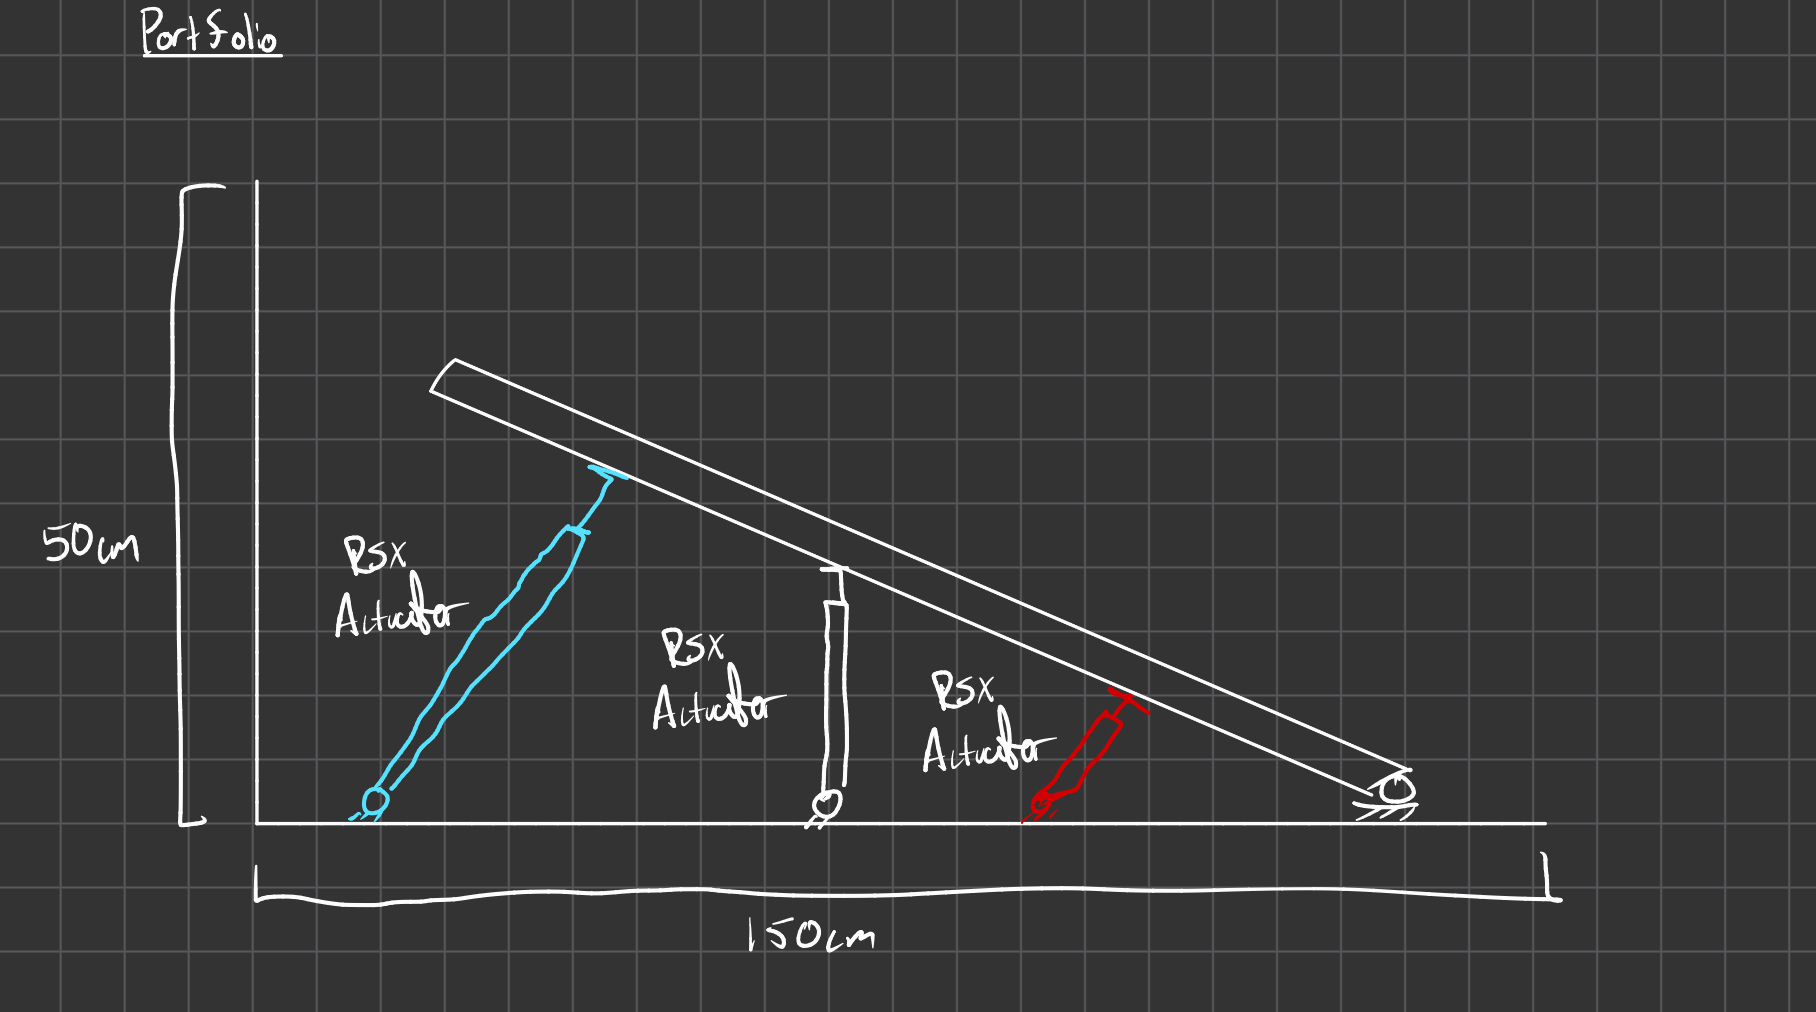 Portfolio
50cm
RSX
Actuator
RSX
Actuator
RSX
Actuator
150cm